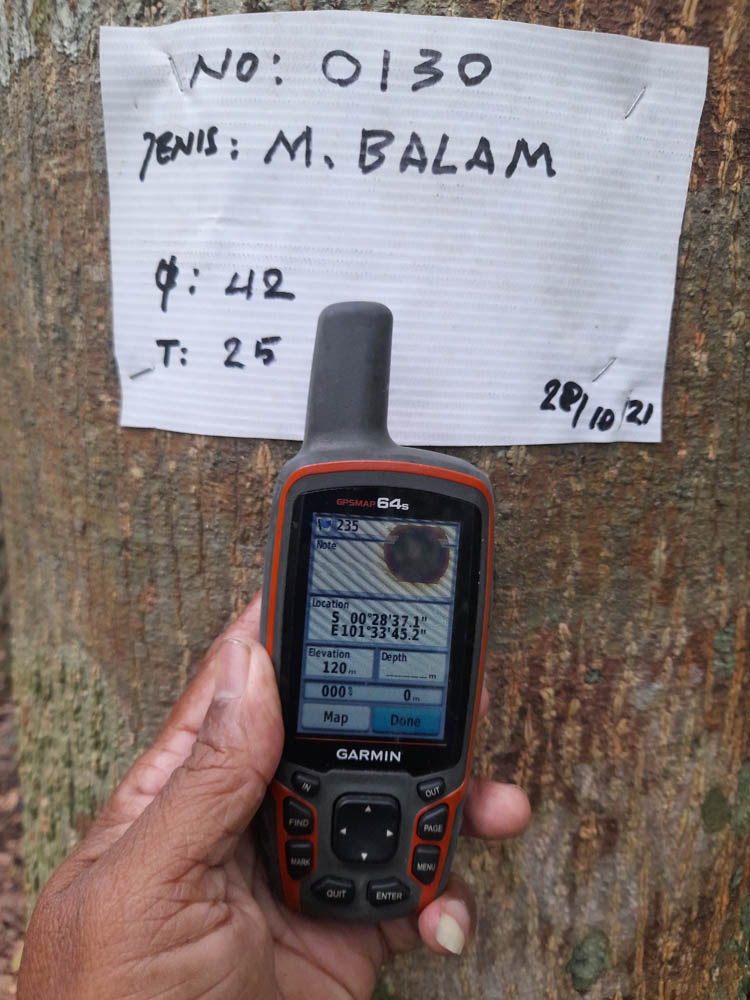 NO: 0130
JENIS: M. BALAM
φ: 42
T: 25
28/10/21
GPSMAP 64s
235
Note
Location
S 00°28'37.1"
E101°33'45.2"
Elevation
Depth
120 m
______ m
000°
0 m
Map
Done
GARMIN
IN
OUT
FIND
PAGE
MARK
MENU
QUIT
ENTER